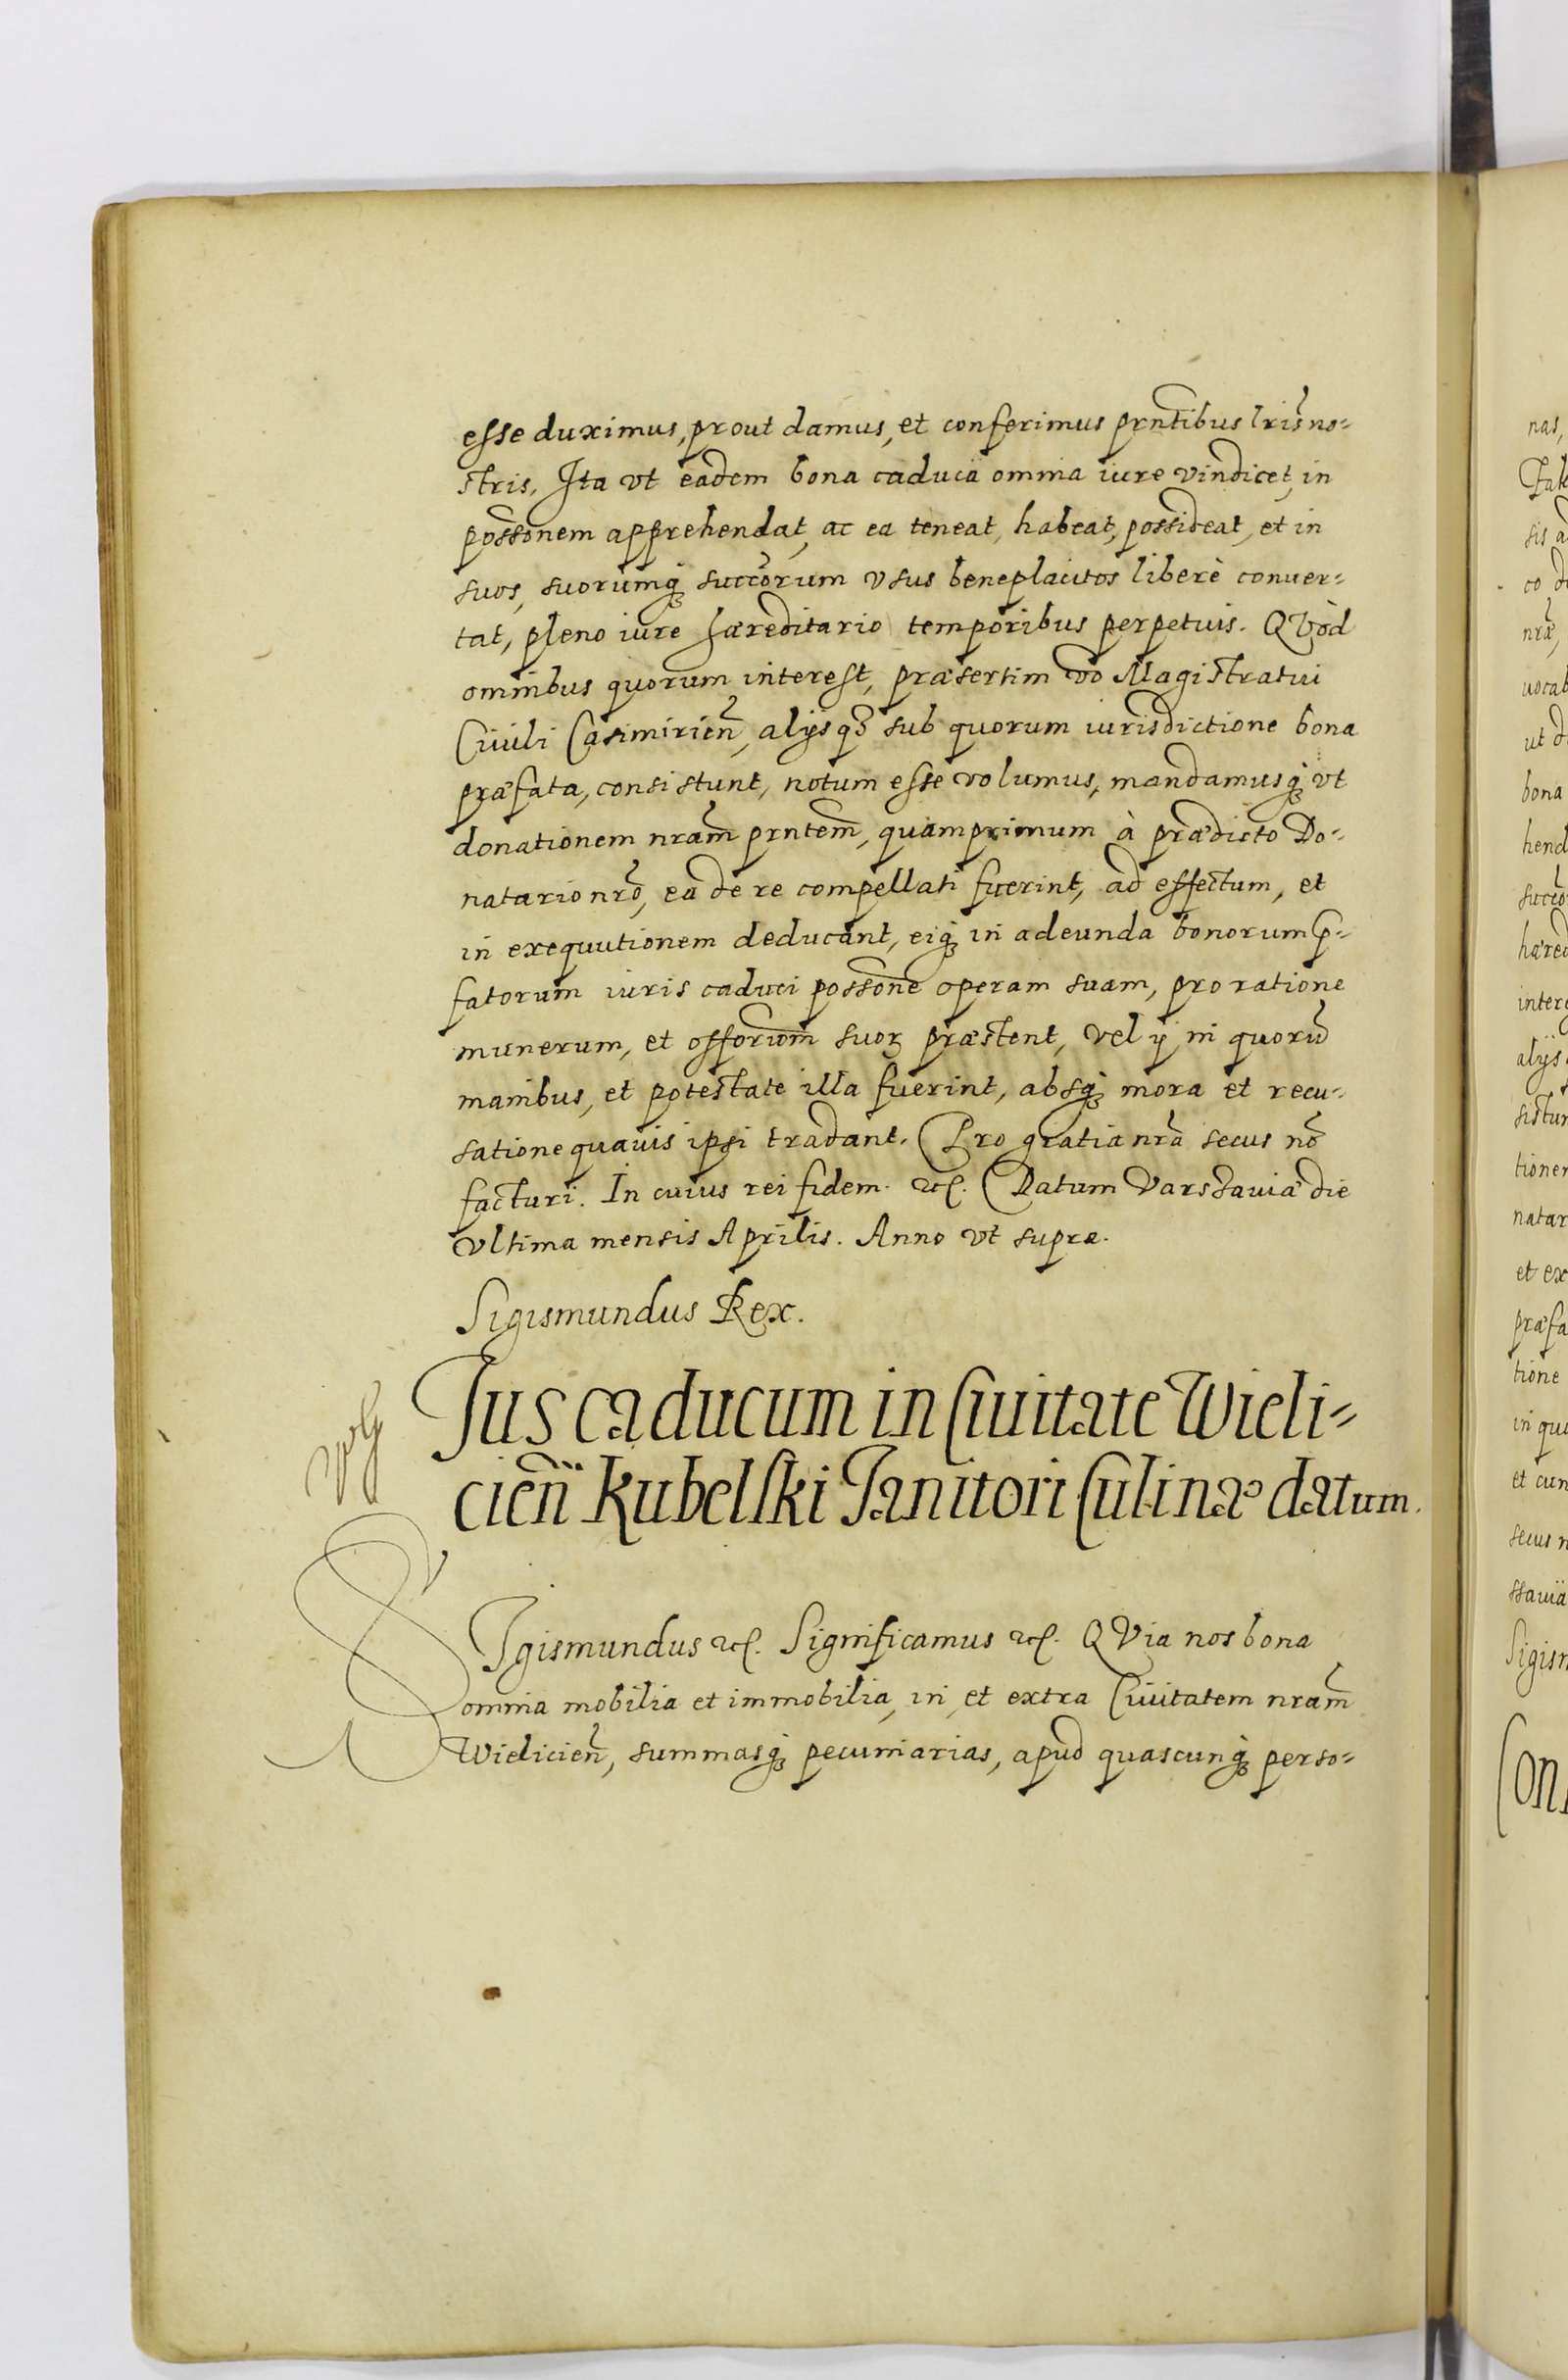 esse duximus, prout damus, et conferimus prntibus lris no-
stris. Ita vt eadem bona caduca omnia iure vindicet, in
possonem apprehendat, ac ea teneat, habeat, possideat, et in
suos, suorumq; succorum vsus beneplacitos liberè conuer-
tat, pleno iure hæreditario temporibus perpetuis. QVòd
omnibus quorum interest, præsertim vo Magistratui
Ciuili Casimirien, alijsq; sub quorum iurisdictione bona
præfata, consistunt, notum esse volumus, mandamusq; vt
donationem nram prntem, quamprimum à prædicto Do-
natario nro, ea de re compellati fuerint, ad effectum, et
in exequutionem deducant, eiq; in adeunda bonorum p-
fatorum iuris caduci possone operam suam, pro ratione
munerum, et offoriom suoꝝ præstent, vel ij in quorũ
manibus, et potestate illa fuerint, absq; mora et recu-
satione quauis ipsi tradant. Pro gratia nra secus nõ
facturi. In cuius rei fidem. etc. Datum Varstauiæ die
vltima mensis Aprilis. Anno vt supra.
Sigismundus Rex.
Jus caducum in Ciuitate Wieli-
cien Kubelski Janitori Culinæ datum.
SIgismundus etc. Significamus etc. QVia nos bona
omnia mobilia et immobilia, in, et extra Ciuitatem nram
Wielicien, summasq; pecuniarias, apud quascunq; perso-
nas,
sis
co
nræ,
ut
bona
hend
hæred
alijs
tioner
natar
et ex
præfa
tione
in qu
et cun
secus n
Sigism
Con